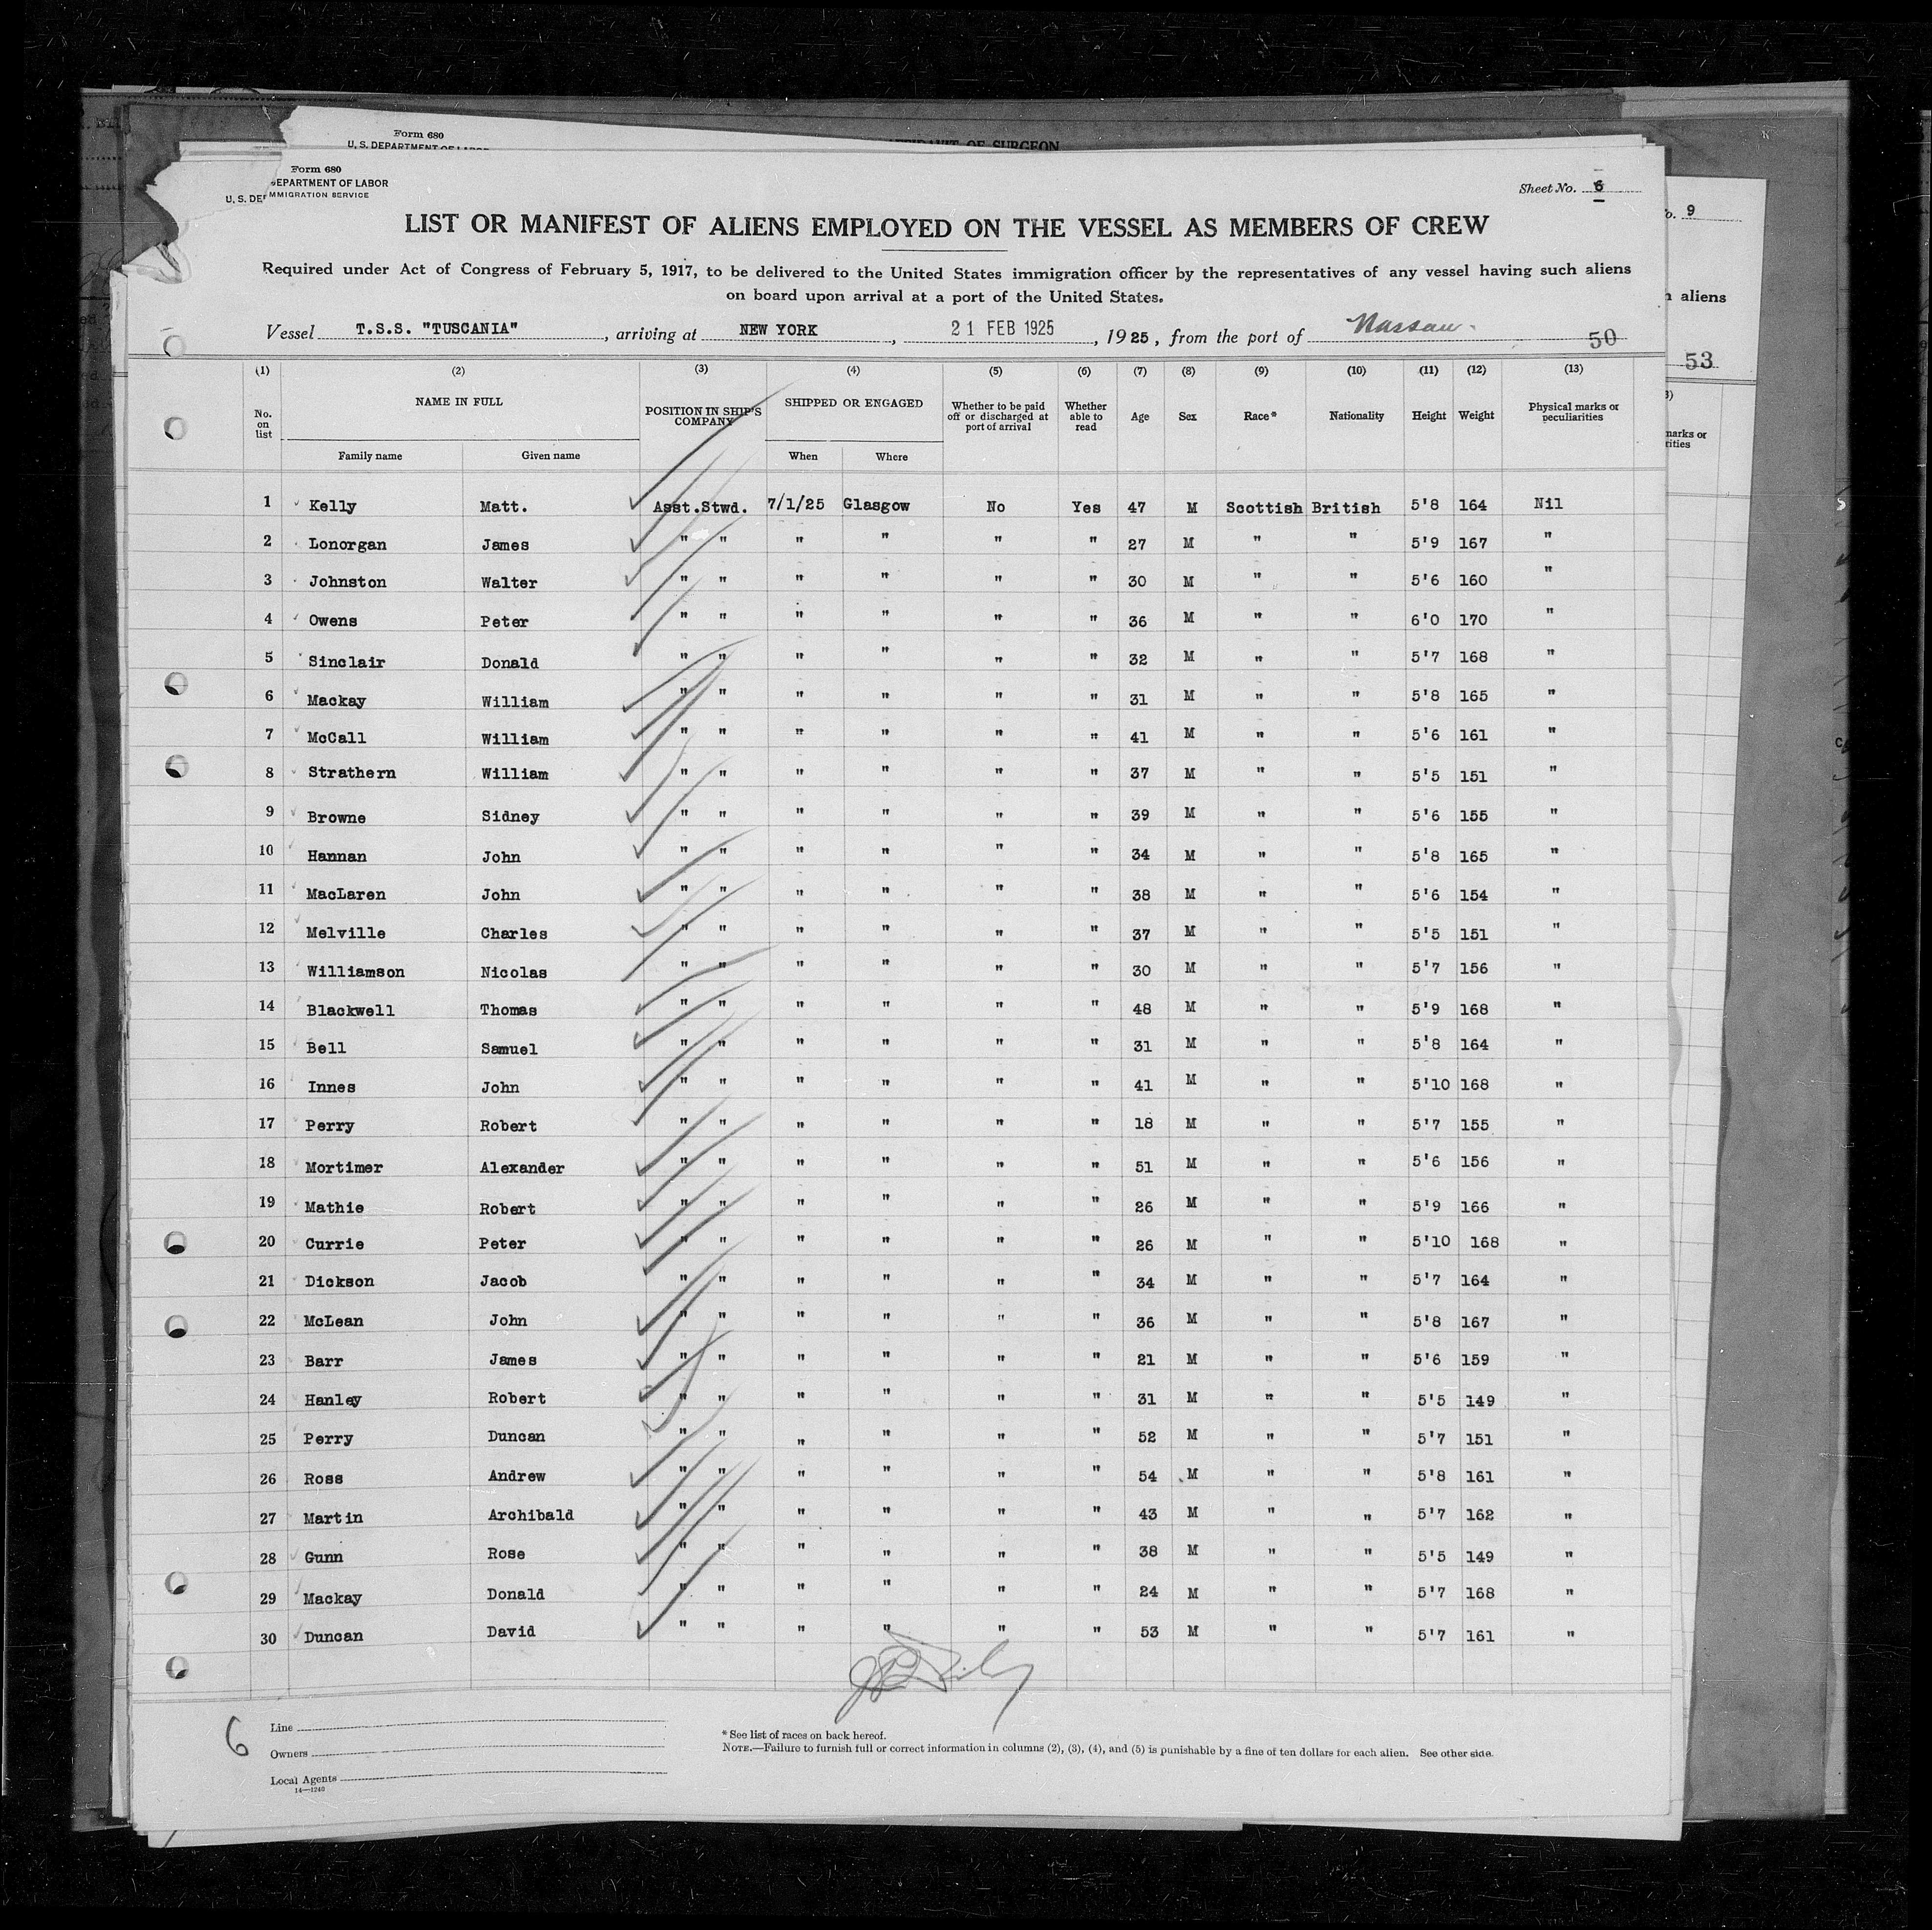 Form 680
U. S. DEPARTMENT OF LABOR
AFFIDAVIT OF SURGEON
Form 680
U. S. DEPARTMENT OF LABOR
IMMIGRATION SERVICE
Sheet No. 6
LIST OR MANIFEST OF ALIENS EMPLOYED ON THE VESSEL AS MEMBERS OF CREW
Required under Act of Congress of February 5, 1917, to be delivered to the United States immigration officer by the representatives of any vessel having such aliens
on board upon arrival at a port of the United States.
Vessel T.S.S. "TUSCANIA", arriving at NEW YORK, 21 FEB 1925, 1925, from the port of Nassau. 50
(1) (2) (3) (4) (5) (6) (7) (8) (9) (10) (11) (12) (13)
No. on list NAME IN FULL Family name Given name POSITION IN SHIP'S COMPANY SHIPPED OR ENGAGED When Where Whether to be paid off or discharged at port of arrival Whether able to read Age Sex Race* Nationality Height Weight Physical marks or peculiarities
1 Kelly Matt. Asst.Stwd. 7/1/25 Glasgow No Yes 47 M Scottish British 5'8 164 Nil
2 Lonorgan James " " " " " " 27 M " " 5'9 167 "
3 Johnston Walter " " " " " " 30 M " " 5'6 160 "
4 Owens Peter " " " " " " 36 M " " 6'0 170 "
5 Sinclair Donald " " " " " " 32 M " " 5'7 168 "
6 Mackay William " " " " " " 31 M " " 5'8 165 "
7 McCall William " " " " " " 41 M " " 5'6 161 "
8 Strathern William " " " " " " 37 M " " 5'5 151 "
9 Browne Sidney " " " " " " 39 M " " 5'6 155 "
10 Hannan John " " " " " " 34 M " " 5'8 165 "
11 MacLaren John " " " " " " 38 M " " 5'6 154 "
12 Melville Charles " " " " " " 37 M " " 5'5 151 "
13 Williamson Nicolas " " " " " " 30 M " " 5'7 156 "
14 Blackwell Thomas " " " " " " 48 M " " 5'9 168 "
15 Bell Samuel " " " " " " 31 M " " 5'8 164 "
16 Innes John " " " " " " 41 M " " 5'10 168 "
17 Perry Robert " " " " " " 18 M " " 5'7 155 "
18 Mortimer Alexander " " " " " " 51 M " " 5'6 156 "
19 Mathie Robert " " " " " " 26 M " " 5'9 166 "
20 Currie Peter " " " " " " 26 M " " 5'10 168 "
21 Dickson Jacob " " " " " " 34 M " " 5'7 164 "
22 McLean John " " " " " " 36 M " " 5'8 167 "
23 Barr James " " " " " " 21 M " " 5'6 159 "
24 Hanley Robert " " " " " " 31 M " " 5'5 149 "
25 Perry Duncan " " " " " " 52 M " " 5'7 151 "
26 Ross Andrew " " " " " " 54 M " " 5'8 161 "
27 Martin Archibald " " " " " " 43 M " " 5'7 162 "
28 Gunn Rose " " " " " " 38 M " " 5'5 149 "
29 Mackay Donald " " " " " " 24 M " " 5'7 168 "
30 Duncan David " " " " " " 53 M " " 5'7 161 "
6
Line
Owners
Local Agents
14—1240
* See list of races on back hereof.
NOTE.—Failure to furnish full or correct information in columns (2), (3), (4), and (5) is punishable by a fine of ten dollars for each alien. See other side.
9
aliens
53
marks or